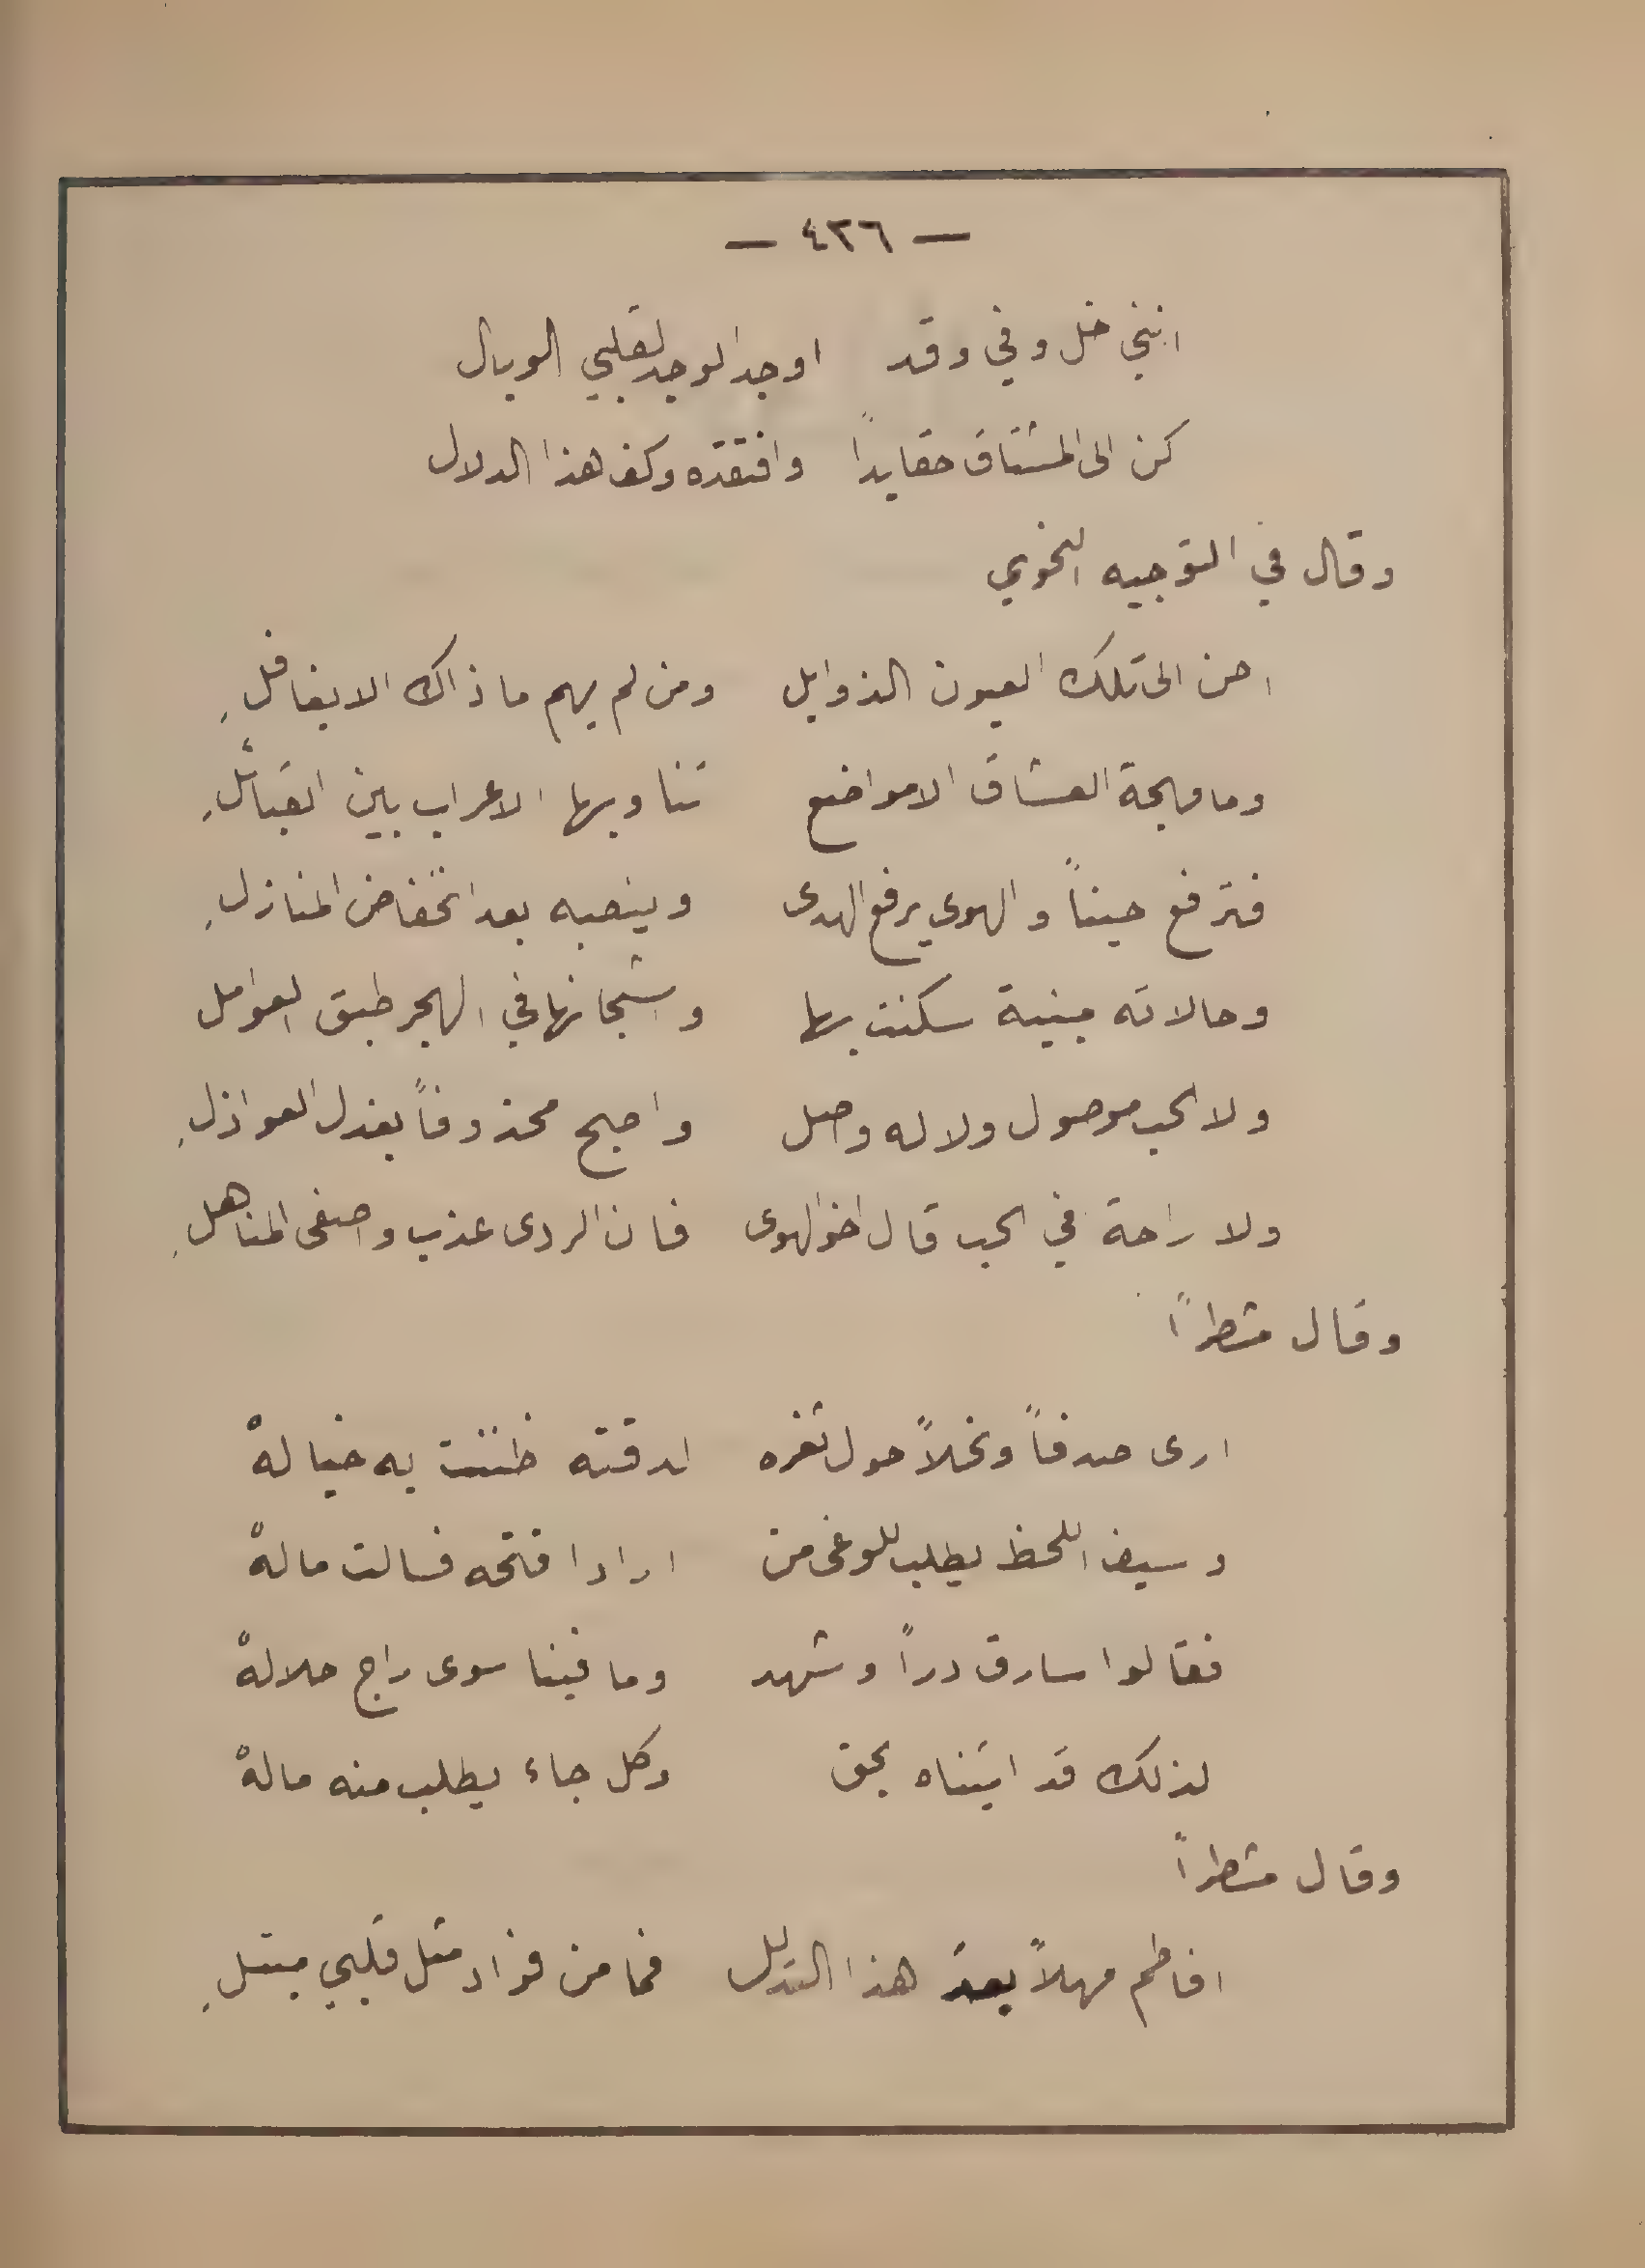 — ٤٢٦ —
انني خل وفي وقد اوجد الوجد لقلبي الوبال
كن الى المشتاق حقا يدًا وافتقده وكف هذا الدلال
وقال في التوجيه النحوي
احن الى تلك العيون الذوابل ومن لم يهم ما ذاك الا بغافلِ
وما مهجة العشاق الا مواضع تناوبها الاعراب بين القبائلِ
فترفع حيناً والهوي يرفع الهدى وينصبه بعد انخفاض المنازلِ
وحالاته مبنية سكنت بها واشجانها في الهجر طبق العوامل
ولا الحب موصول ولا له واصل واصبح محذوفاً بعذل العواذلِ
ولا راحة في الحب قال اخو الهوى فان الردى عذب واصفى المناهلِ
وقال مشطراً
ارى صدفاً ونحلاً حول ثغره لدقته ظننت به خيالهْ
وسيف اللحظ يطلب للوغى من ارادا فتحه فسالت مالهْ
فقالوا سارق دراً وشهد وما فينا سوى راج حلالهْ
لذلك قد اتيناه بحق وكل جاء يطلب منه مالهْ
وقال مشطراً
افاطم مهلاً بعدَ هذا التدلل فما من فؤاد مثل قلبي مبتلِ